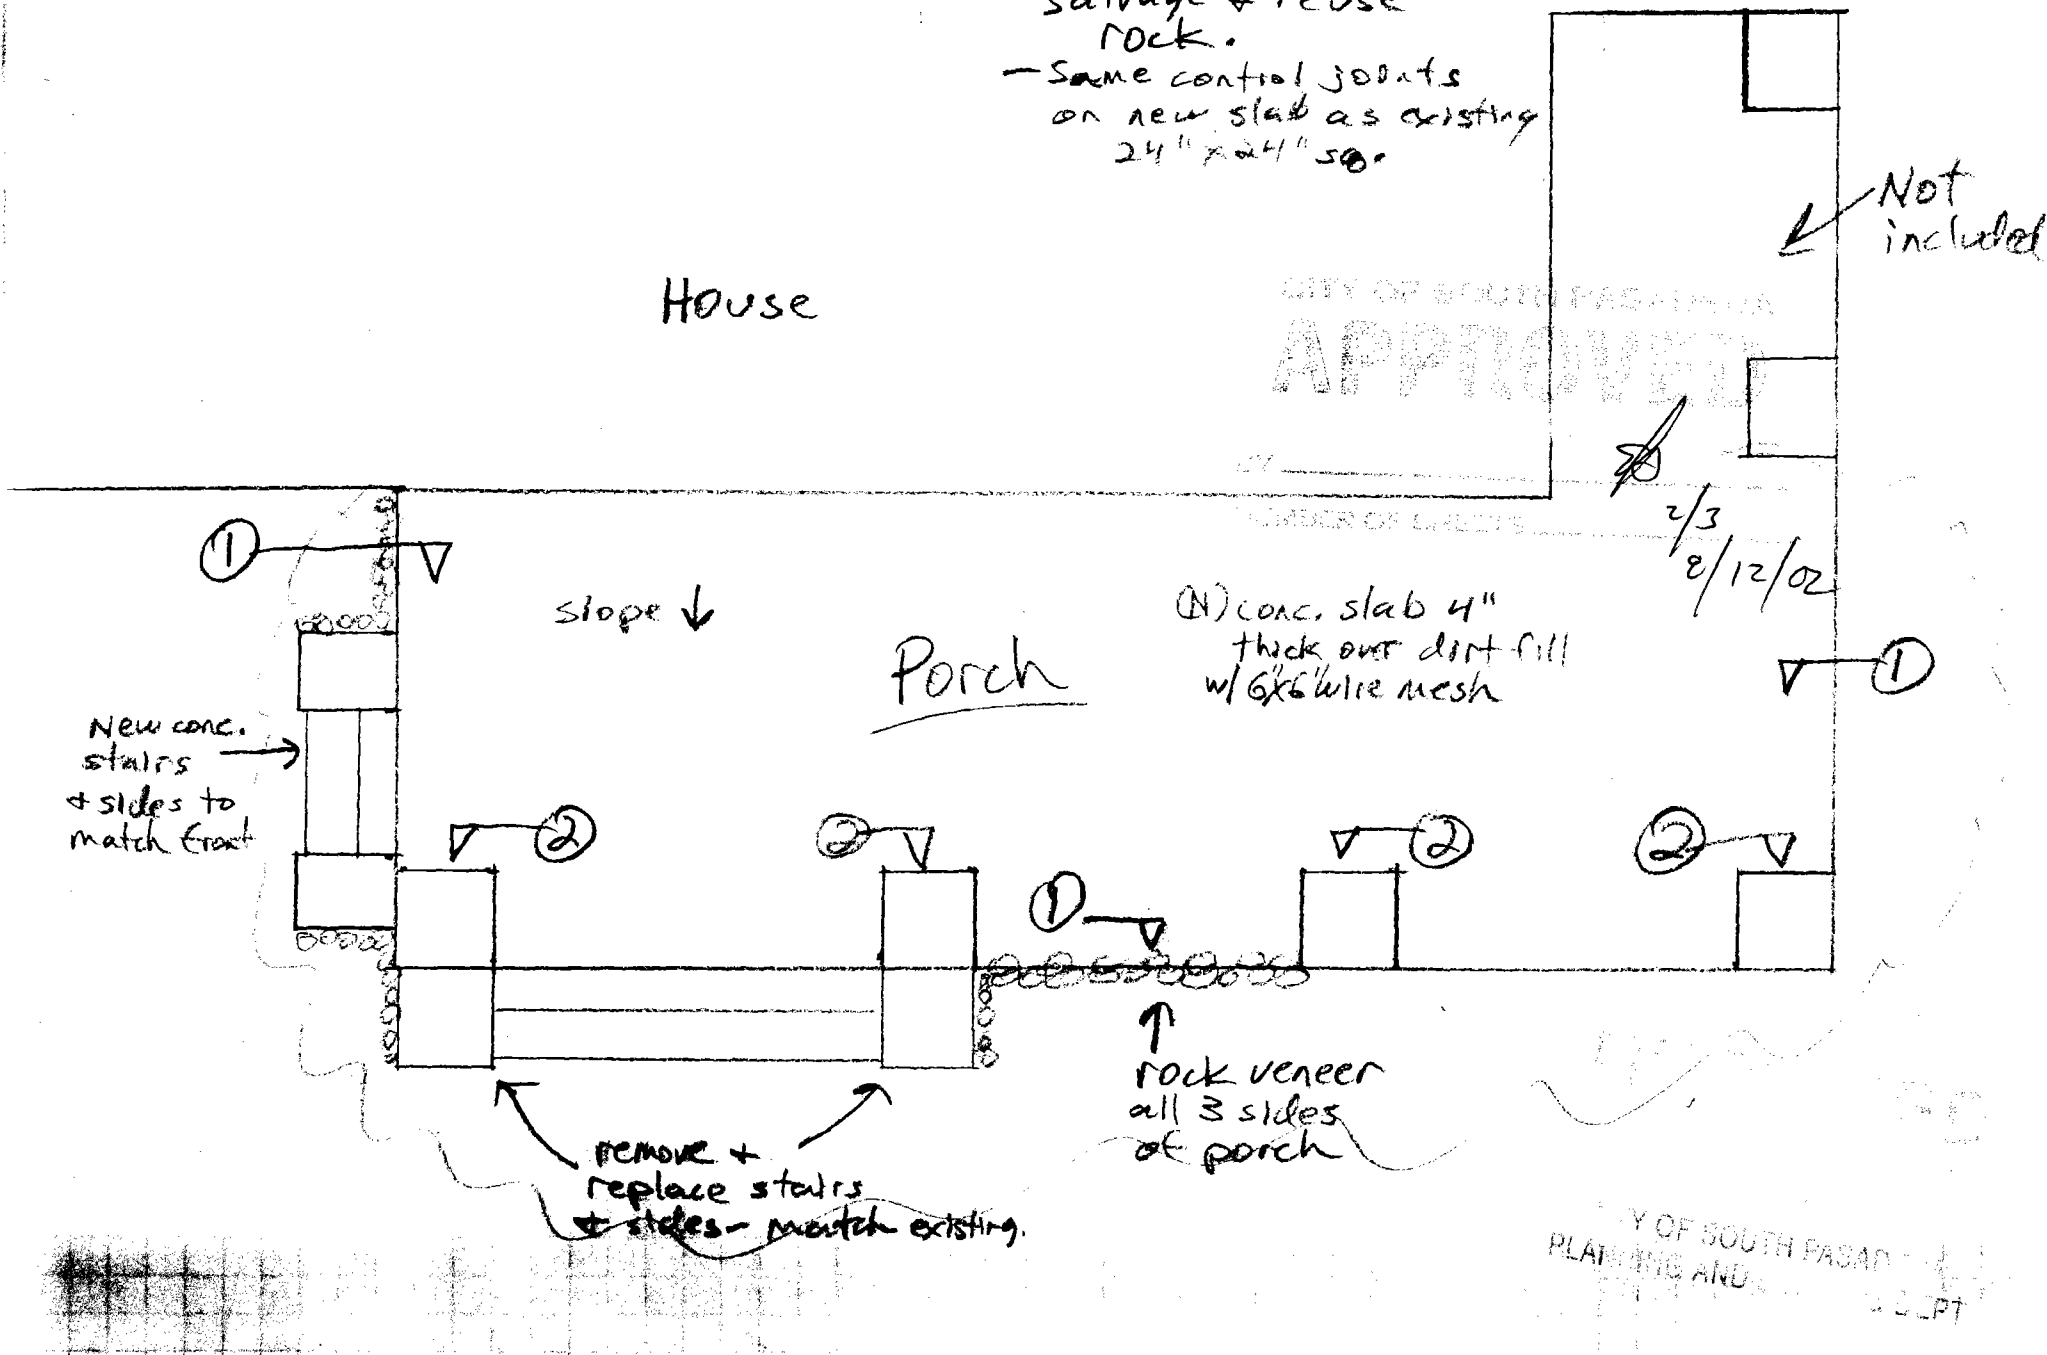 salvage & reuse
rock.
- Same control joints
on new slab as existing
24" x 24" sq.
Not
included
House
CITY OF SOUTH PASADENA
APPROVED
BY
NUMBER OF SHEETS
2/3
8/12/02
1
slope ↓
(N) conc. slab 4"
thick over dirt fill
w/ 6"x6" wire mesh
Porch
1
New conc.
stairs
& sides to
match front
2
2
2
2
1
rock veneer
all 3 sides
of porch
remove &
replace stairs
& sides - match existing.
Y OF SOUTH PASAD
PLANNING AND
DEPT